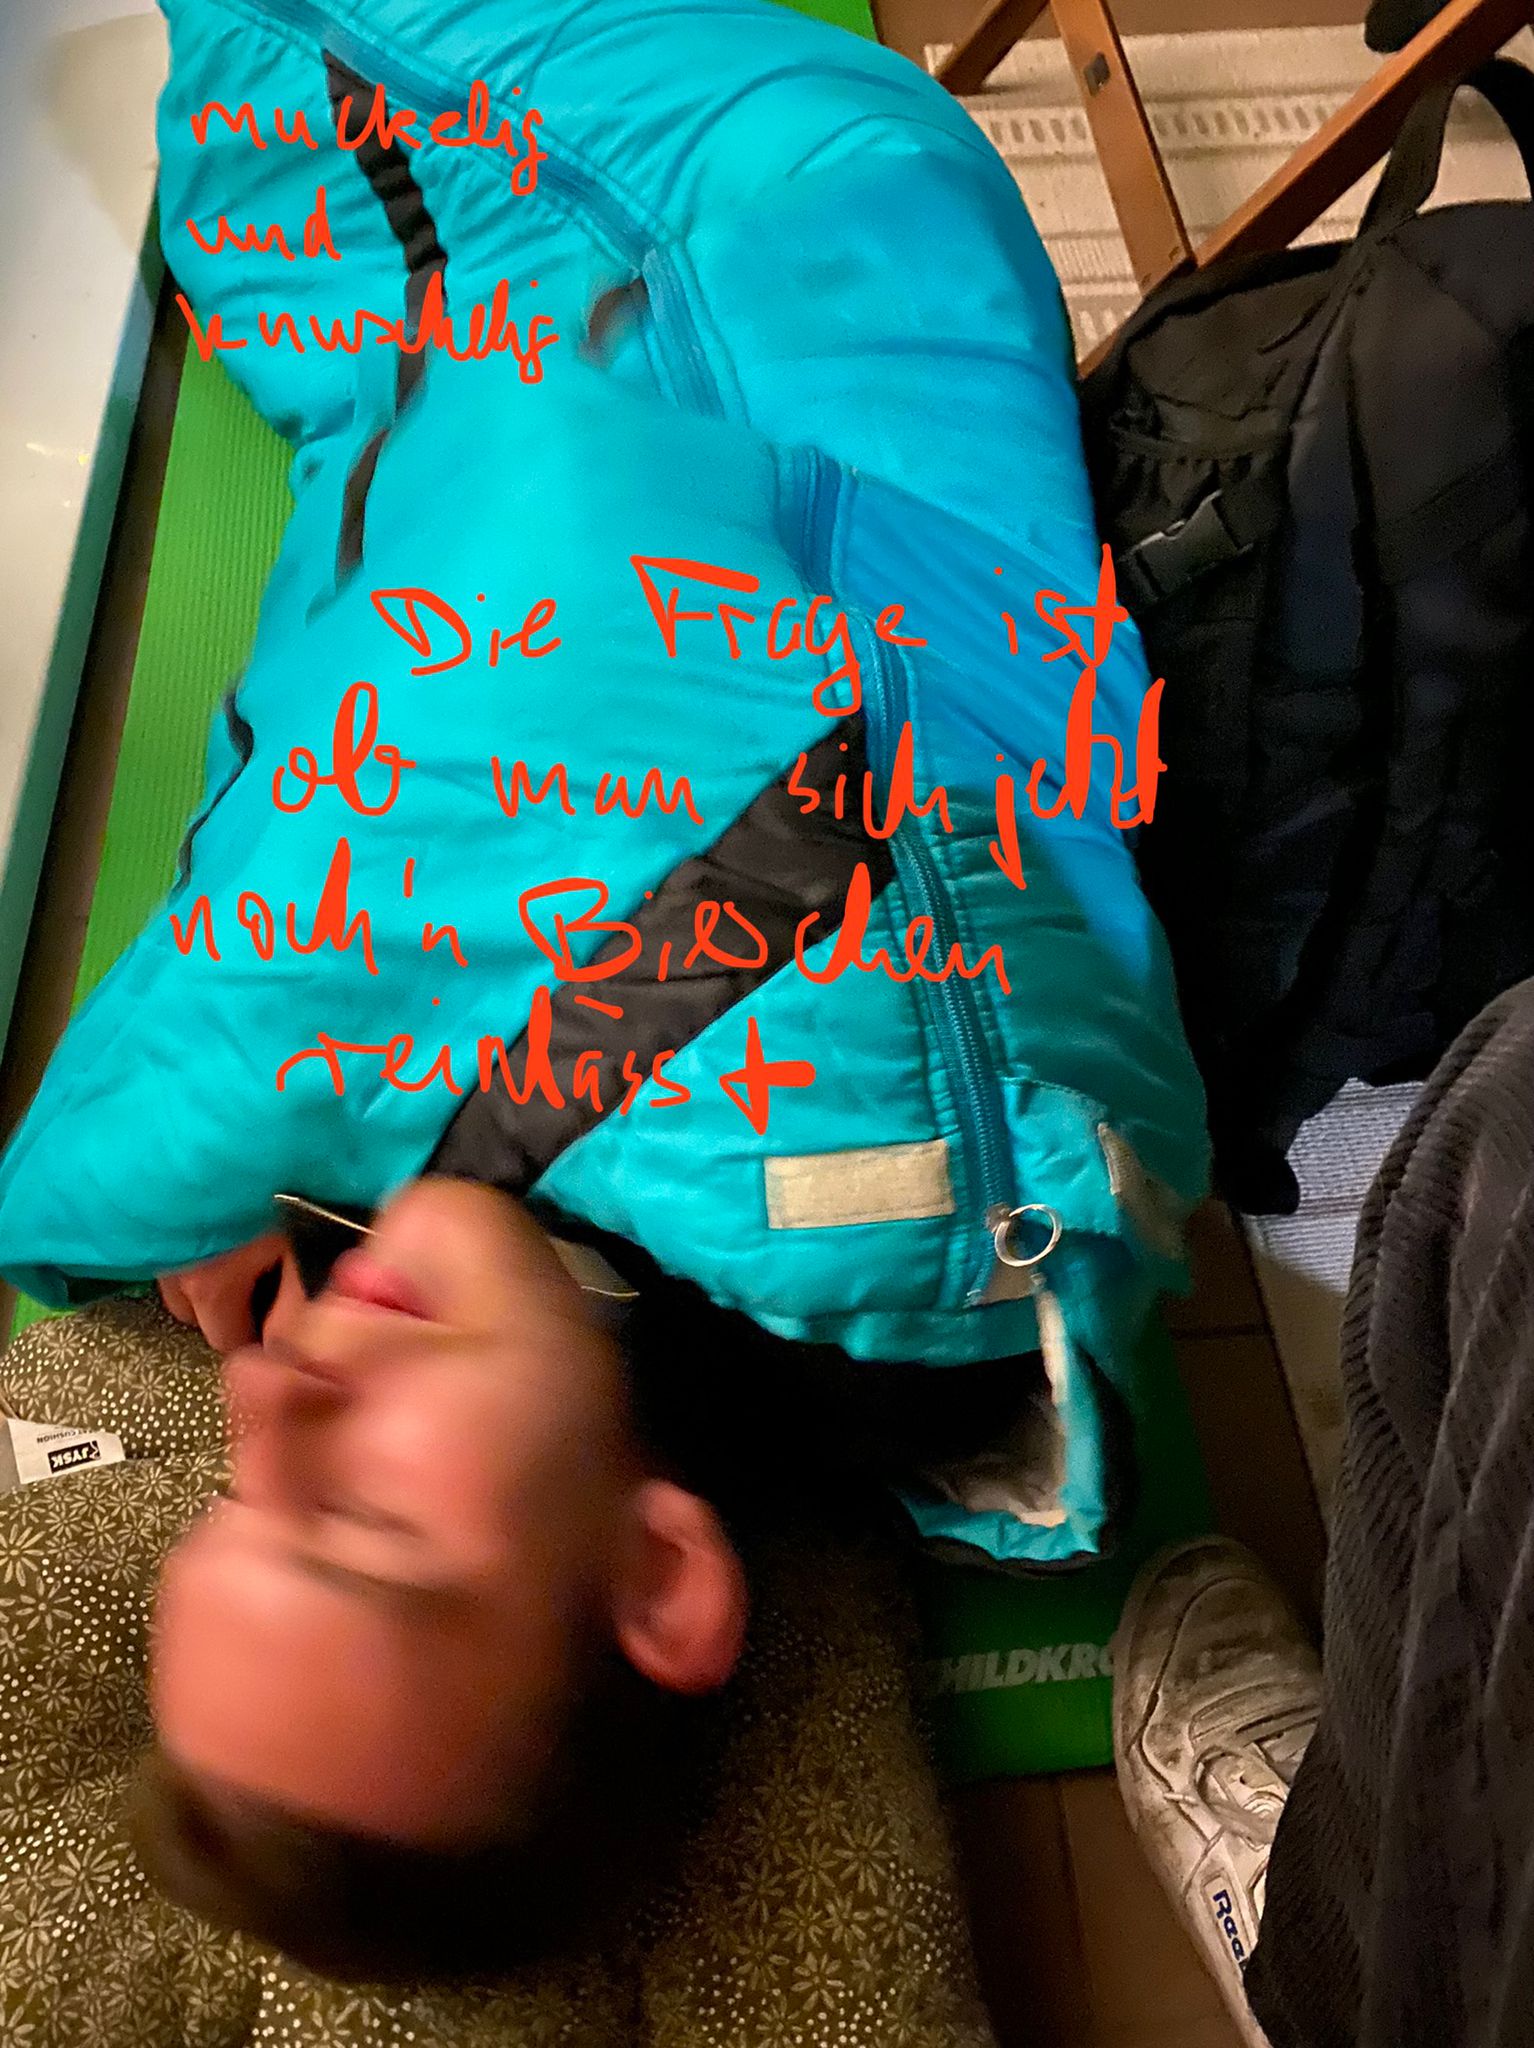 muckelig
und
knuschelig
Die Frage ist
ob man sich jetzt
noch'n Bisschen
reinlässt
JYSK
CUSHION
HILDKR
Ree